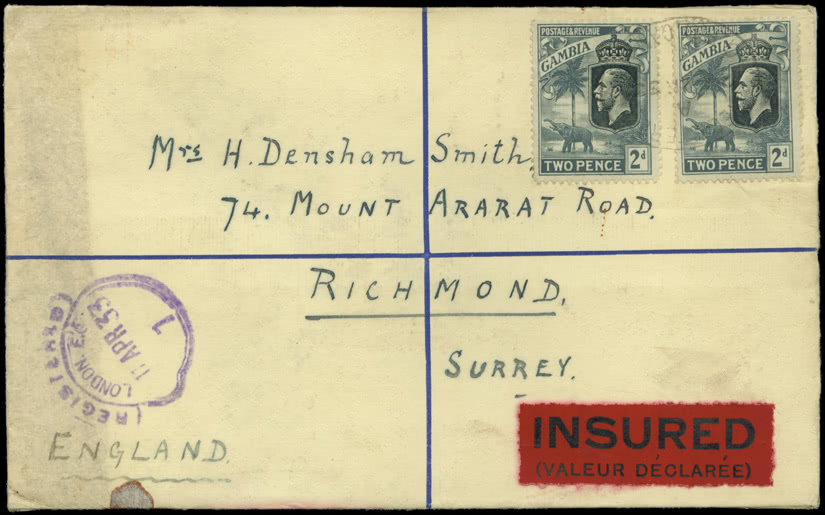 POSTAGE & REVENUE
GAMBIA
TWO PENCE 2d
POSTAGE & REVENUE
GAMBIA
TWO PENCE 2d
Mrs H. Densham Smith,
74. MOUNT ARARAT ROAD.
RICHMOND.
SURREY.
ENGLAND.
REGISTERED
LONDON E.C.
11 APR 33
1
INSURED
(VALEUR DÉCLARÉE)